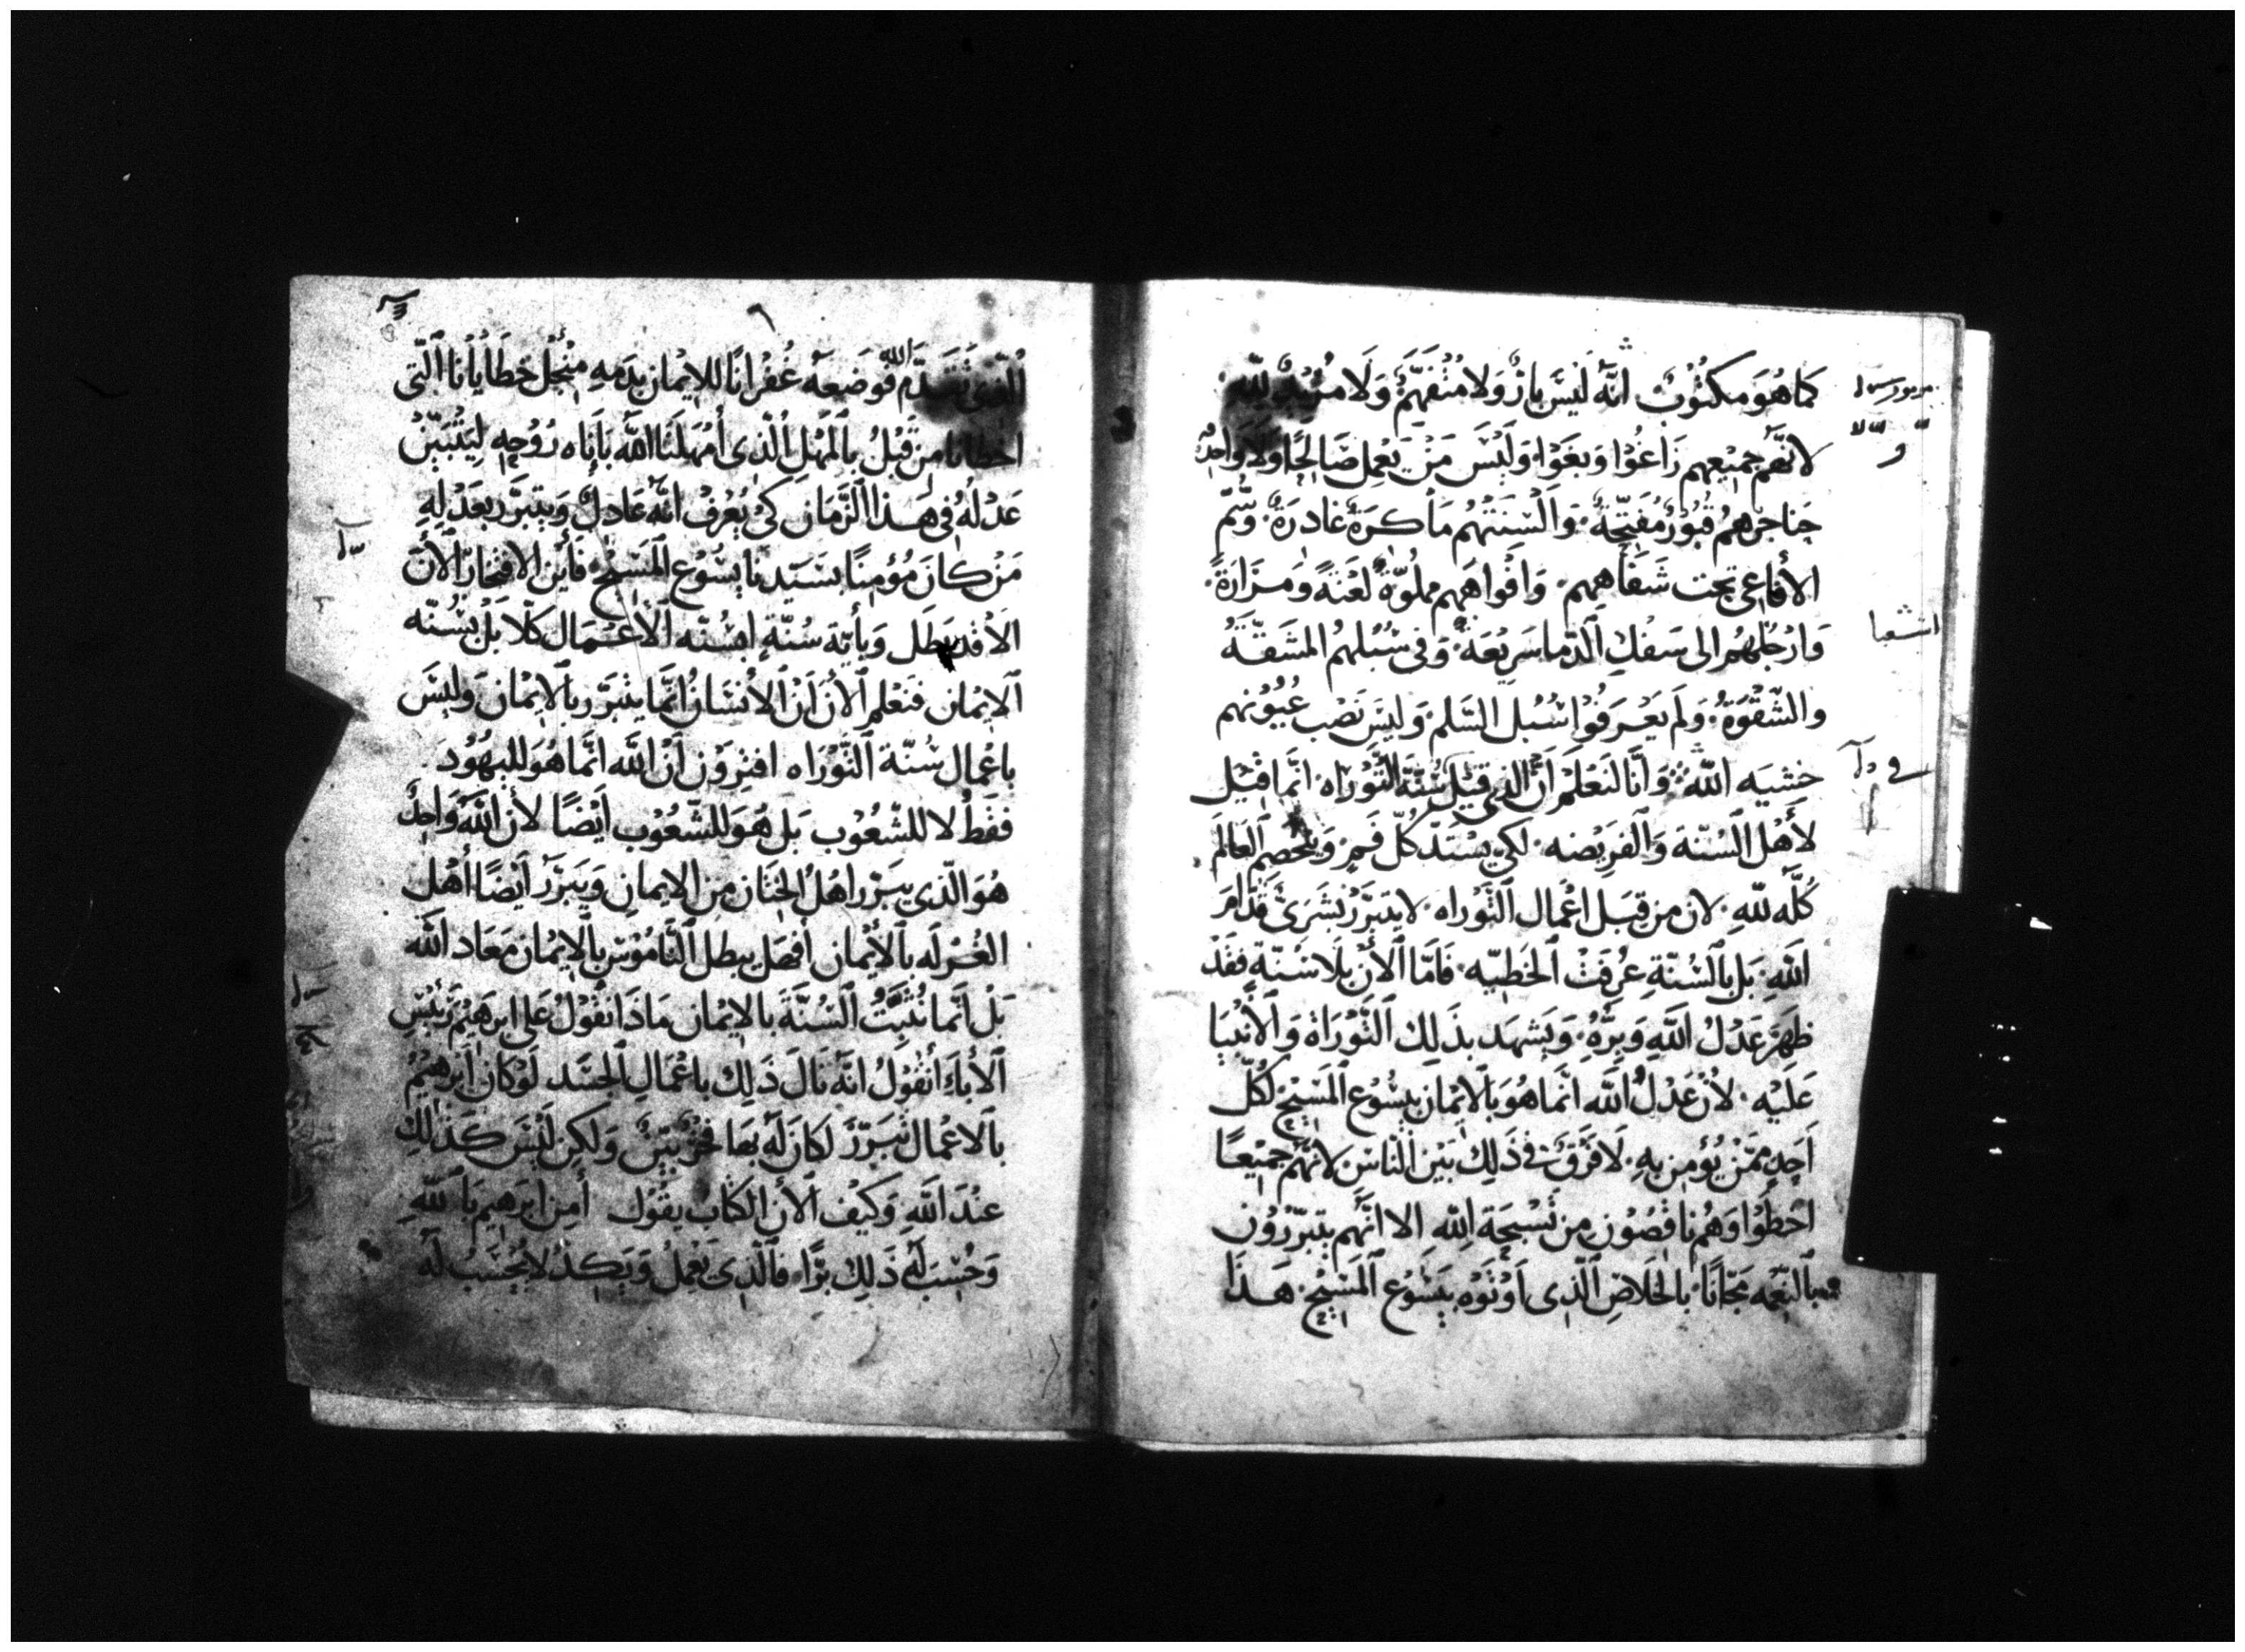 كَما هُوَ مكتُوبٌ انّهَ لَيسَ بارٌ وَلا مُتفهّمٌ وَلَا مُريدٌ لِلّهِ
لانّهم جميعهم زَاغُوا وَبغَوا وَليْسَ مَنْ يَعمل صَالحًا وَلا وَاحدٌ
حناجرهمُ قبُورٌ مُفتّحةٌ وَالسنتهُم مَاكرَةٌ غادرَةٌ وَسُمّ
الأفاعِى تحت شفاههم وَافواههم مملوّةٌ لعنَةً وَمرَارَةً
وَارجُلهمُ الى سَفك الدّما سَريعَةٌ وَفى سُبلهمُ المشقّةُ
والشّقوةُ وَلم يَعْرفُوا سُبل السّلم وَليسَ نصْب عُيُونهم
خشيَه اللّه وَانّا لنَعْلَم انّ الذى قيْلَ سُنّة التّوْرَاه انّما قيْل
لأهْل السُنّة وَالفريضه لكي يسْتدّ كُلّ فَمٍ وَيخصم العَالَم
كُلّه للّهِ لان من قبَل اعْمال التّوراه لا يتبرّرُ بَشرَىٌ قدّامَ
اللّهِ بَل بالسُنّةِ عُرفَتْ الخطيّه فَامّا الأنَ بلا سُنّةٍ فقَدْ
ظهرَ عَدْلُ اللّهِ وَبرّهُ وَيَشهَد بذَلِك التّوْرَاة وَالأنبيَا
عَلَيْه لأن عَدْلُ اللّه انّما هُوَ بالايْمان بيسُوع المَسيْح لكُلّ
أحدٍ ممّنْ يُؤمن بهِ لَا فرْقَ فى ذَلِك بَيْن النّاسِ لانّهم جَميْعًا
اخطَوا وَهُم ناقصُون من تسْبحَة اللّه الا انّهم يتبرّرُون
بالنّعْمه مَجّانًا بالخَلَاصِ الّذى اوْتوْه بيسُوع المَسيْح هَذا
الّذى تقَدّم اللّه فوضَعهُ غُفرَانًا للايْمان بدَمهِ منْ أجْل خطَايَانا الّتى
اخطانا من قَبْلُ بالمَهْل الّذى أمْهَلنَا اللّه بَأناه رُوْحهِ ليتبيّن
عَدْلهُ فى هَذا الزّمَان كىْ يُعْرفْ انّهُ عَادلٌ وَيتبرّر بعَدْلهِ
مَنْ كانَ مُؤمنًا بسَيّدنَا يسُوْع المَسيْح فأيْن الافتخارُ الأنَ
الا قد بَطل وَبأيّة سُنّةٍ ابسُنّه الأعْمال كلّا بل بسُنّه
الايْمان فنَعْلم الأنَ أنّ الأنسَانُ انّما يتبَرّر بالايْمان وَليسَ
باعْمال سُنّة التّوْرَاه افتروْن أنّ اللّه انّما هُوَ لليَهُوْد
فقَطْ لا للشّعُوْب بَل هُوَ للشّعُوْب أيْضًا لأن اللّه وَاحدٌ
هُوَ الّذى يبرّر اهْلَ الختَان من الايمانِ وَيبرّر أيْضًا أهْل
الغُرْلَه بالأيْمان افهَل يبطل النّامُوْسَ بالايْمان مَعَاد اللّه
بَلْ انّما نُثبّتُ السُنّةَ بالايْمان مَاذَا نقُوْلُ عَلى ابرَهيْم رَئيْسِ
الأباء أنقُوْلُ انّهُ نَالَ ذَلِك باعْمَالِ الجسَد لَوْ كانَ ابرَهيْمُ
بالاعْمال تبرّرَ لكان لَهُ بهَا فخْرٌ وَلكِن ليْسَ كذَلِكَ
عنْدَ اللّهِ وَكيْف الأن الكتَابُ يقُوْل أمن ابرَهيم باللّهِ
وَحُسبَ لَهُ ذَلِك برًّا فالّذى يَعْملُ وَيَكدُ لا يُحْسَبُ لَهُ
اشعيا